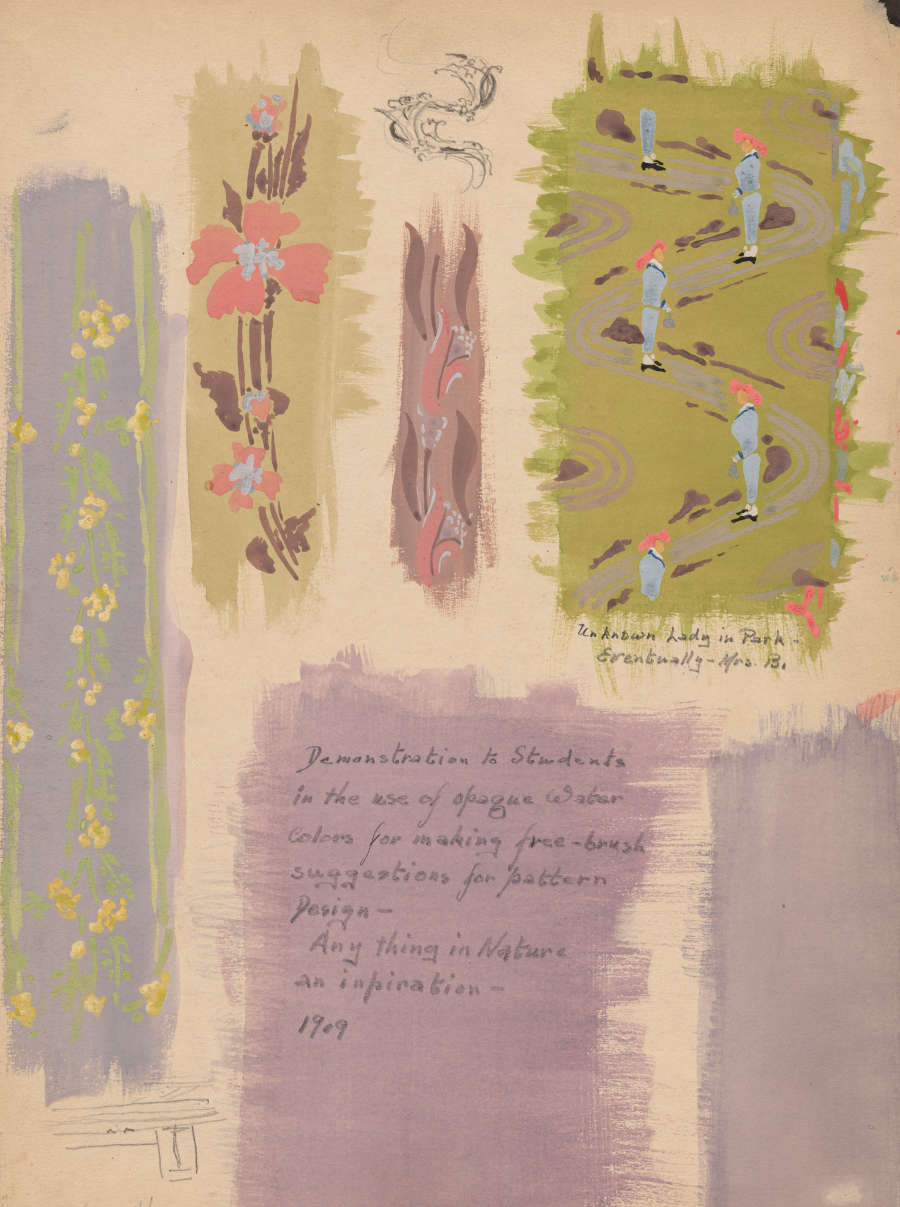 Unknown Lady in Park -
Eventually - Mrs. B.
Demonstration to Students
in the use of opaque Water
Colors for making free-brush
suggestions for pattern
Design -
Any thing in Nature
an inpiration -
1909